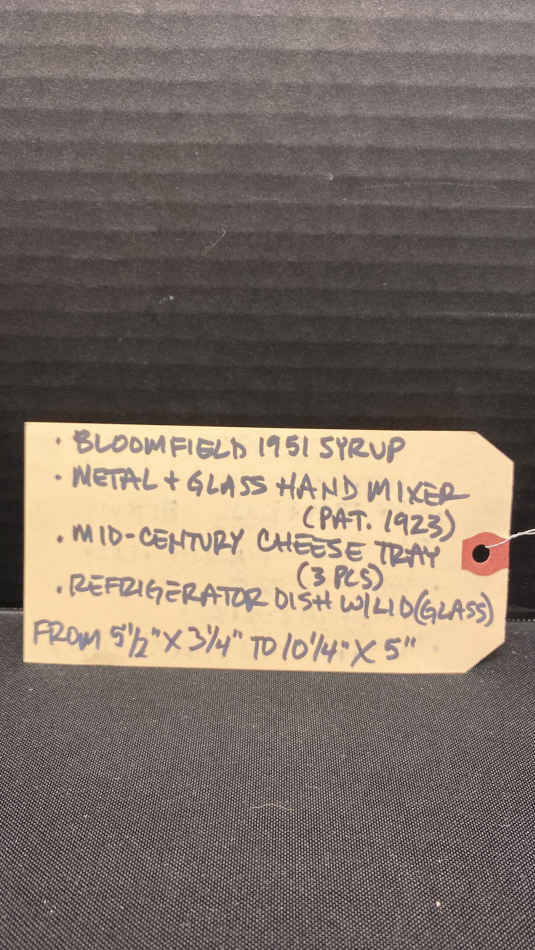 · BLOOMFIELD 1951 SYRUP
· METAL + GLASS HAND MIXER
(PAT. 1923)
· MID-CENTURY CHEESE TRAY
(3 PCS)
· REFRIGERATOR DISH W/LID (GLASS)
FROM 5 1/2" X 3 1/4" TO 10 1/4" X 5"